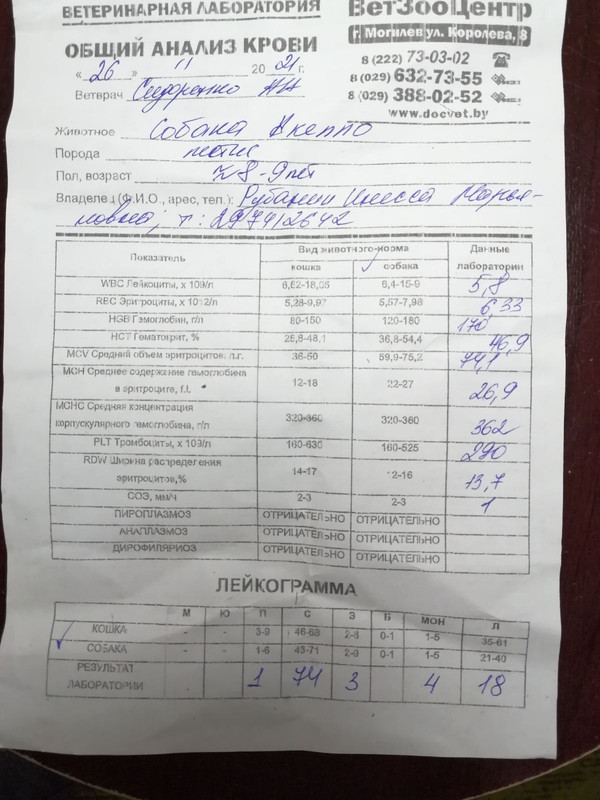 ВЕТЕРИНАРНАЯ ЛАБОРАТОРИЯ
ВетЗооЦентр
г. Могилев ул. Королева, 8
ОБЩИЙ АНАЛИЗ КРОВИ
8 (222) 73-03-02
« 26 » 11 2021 г.
8 (029) 632-73-55
Ветврач Сидоренко АН
8 (029) 388-02-52
www.docvet.by
Животное Собака Акелло
Порода метис
Пол, возраст 7,8-9 лет
Владелец (Ф.И.О., арес, тел.): Инесса Марья-
новна, т: 297412642
Показатель Вид животного-норма Данные лаборатории
кошка собака
WBC Лейкоциты, х 109/л 6,62-18,05 6,4-15-9 5,8
REC Эритроциты, х 1012/л 5,28-9,97 5,57-7,98 6,33
HGB Гемоглобин, г/л 80-150 120-180 170
HCT Гематокрит, % 25,8-48,1 36,8-54,4 46,9
MCV Средний объем эритроцитов, п.г. 36-50 59,9-75,2 74,1
MCH Среднее содержание гемоглобина в эритроците, f.l. 12-18 22-27 26,9
MCHC Средняя концентрация корпускулярного гемоглобина, г/л 320-360 320-360 362
PLT Тромбоциты, х 109/л 160-630 160-525 290
RDW Ширина распределения эритроцитов,% 14-17 12-16 13,7
СОЭ, мм/ч 2-3 2-3 1
ПИРОПЛАЗМОЗ ОТРИЦАТЕЛЬНО ОТРИЦАТЕЛЬНО
АНАПЛАЗМОЗ ОТРИЦАТЕЛЬНО ОТРИЦАТЕЛЬНО
ДИРОФИЛЯРИОЗ ОТРИЦАТЕЛЬНО ОТРИЦАТЕЛЬНО
ЛЕЙКОГРАММА
М Ю П С Э Б МОН Л
КОШКА - - 3-9 46-68 2-8 0-1 1-5 35-61
СОБАКА - - 1-6 43-71 2-9 0-1 1-5 21-40
РЕЗУЛЬТАТ ЛАБОРАТОРИИ 1 74 3 4 18